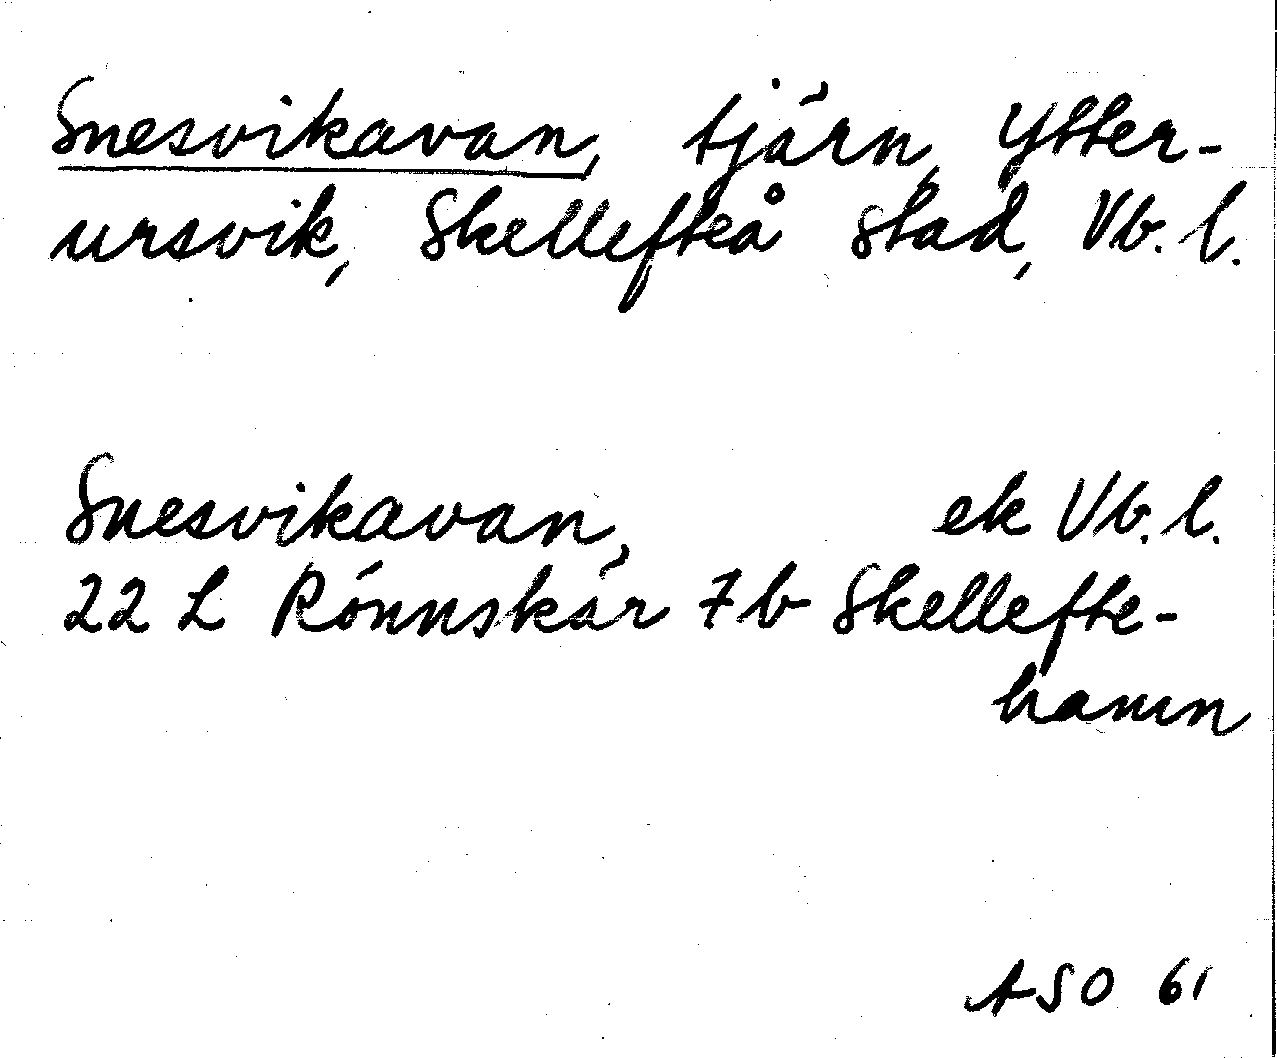 Snesvikavan, tjärn, Ytter-
ursvik, Skellefteå stad, Vb. l.
Snesvikavan, ek Vb. l.
22 L Rönnskär 7b Skellefte-
hamn
ASO 61